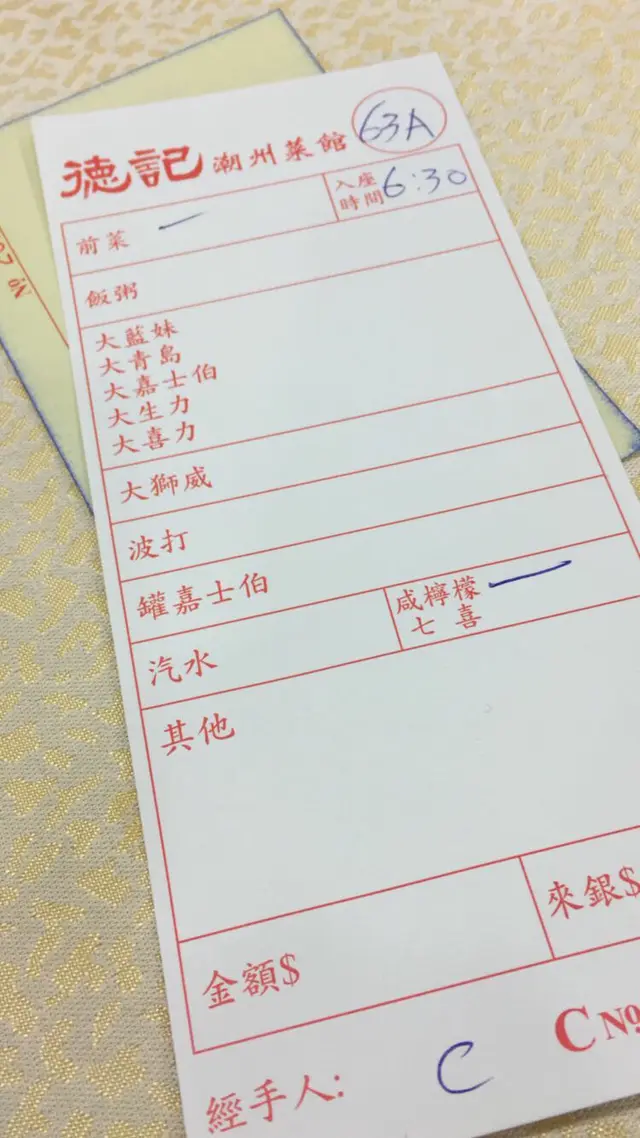 德記 潮州菜館 63A
前菜 一 入座時間 6:30
飯粥
大藍妹
大青島
大嘉士伯
大生力
大喜力
大獅威
波打
罐嘉士伯
汽水 咸檸檬七喜 一
其他
金額$ 來銀$
經手人: C C No
No